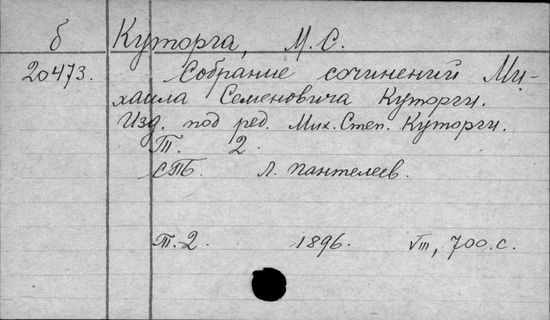 б Куторга, М. С.
20473. Собрание сочинений Ми-
хаила Семеновича Куторги.
Изд. под ред. Мих. Степ. Куторги.
Т. 2.
СПБ. Л. Пантелеев.
Т. 2. 1896. VIII, 700. с.